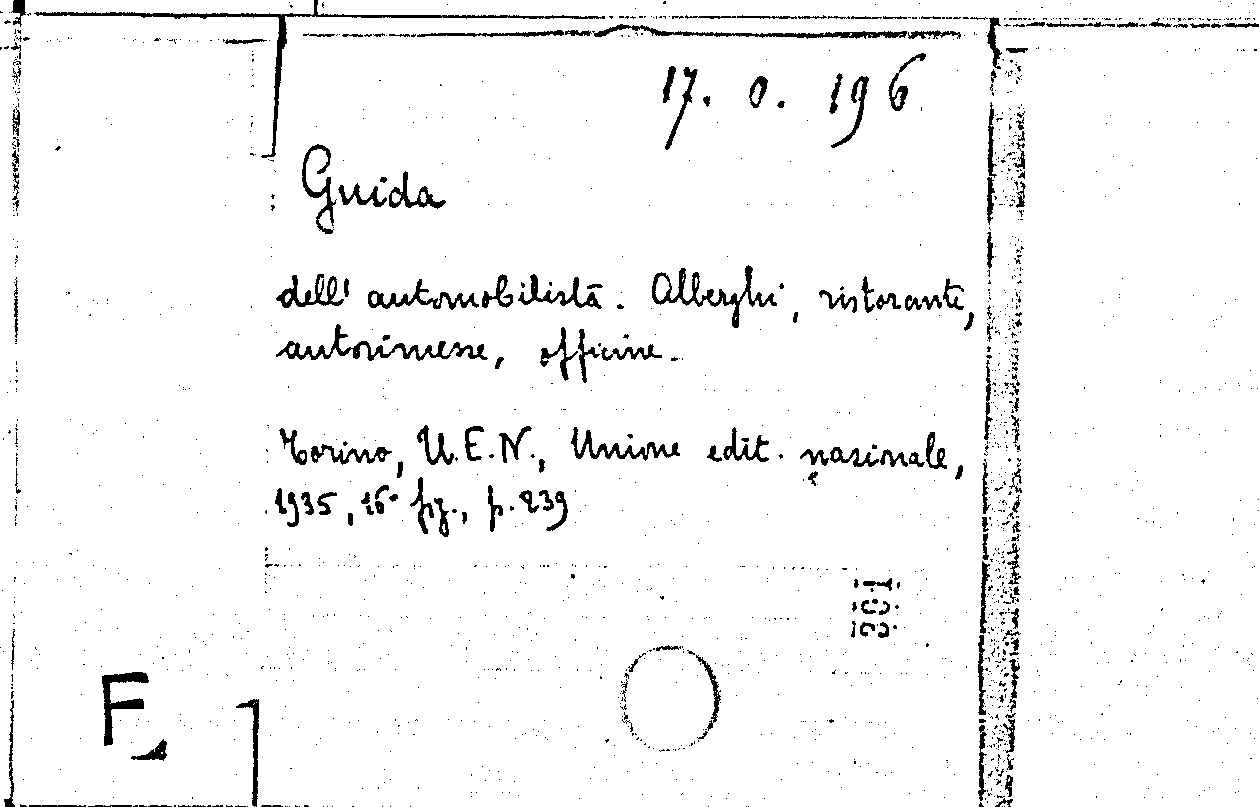 17. O. 196
Guida
dell' automobilistā. Alberghi, ristoranti,
autorimesse, officine.
Torino, U.E.N., Unione edit. nazinale,
1935, 16° fig., p. 239
F